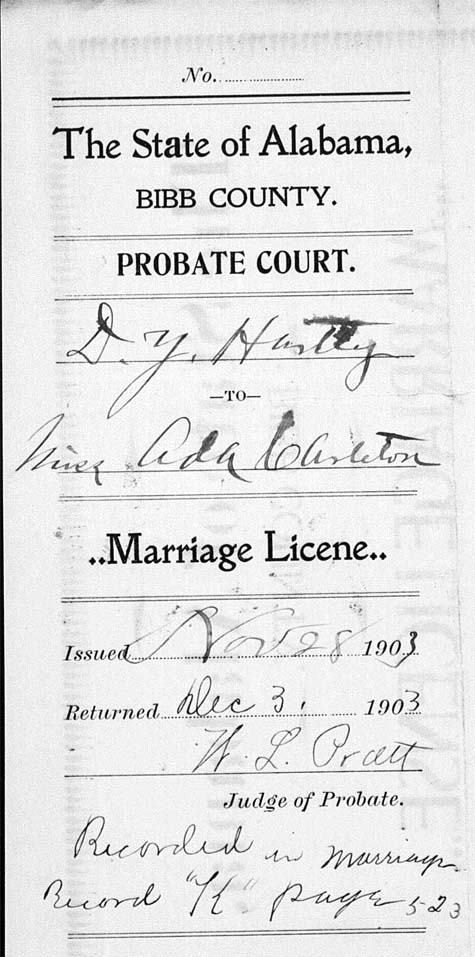 No.
The State of Alabama,
BIBB COUNTY.
PROBATE COURT.
D. Y. Hartley
—TO—
Miss Ada Carleton
..Marriage Licene..
Issued Nov 28 1903
Returned Dec 3. 1903
W. L. Pratt
Judge of Probate.
Recorded in marriage
Record "K" page 523